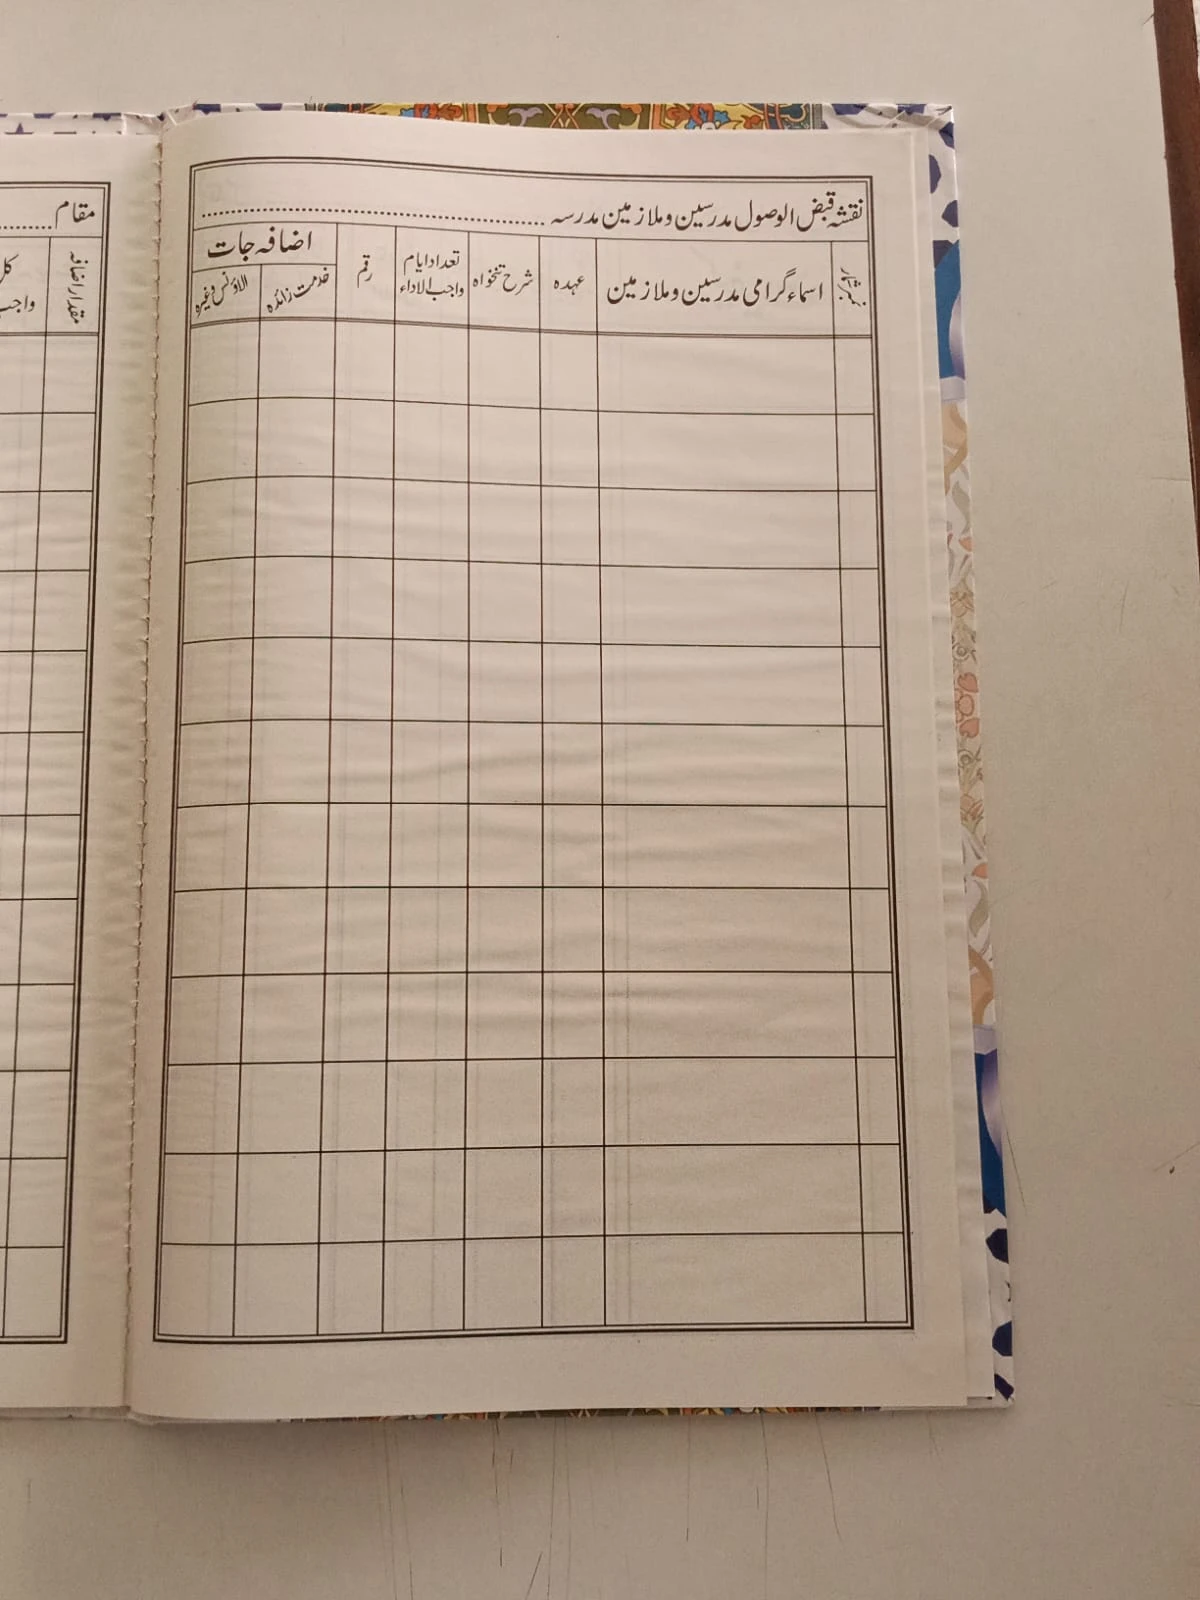 نقشہ قبض الوصول مدرسین و ملازمین مدرسہ ........................................................
نمبر شمار
اسماء گرامی مدرسین و ملازمین
عہدہ
شرح تنخواہ
تعداد ایام
واجب الاداء
رقم
اضافہ جات
خدمت زائدہ
الاؤنس وغیرہ
مقام ..........
مقدار اضافہ
کل
واجب